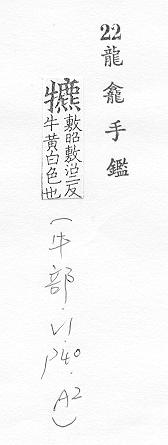 22龍龕手鑑
犥敷昭敷沼二反
牛黃白色也
(牛部.V1.P40.A2)